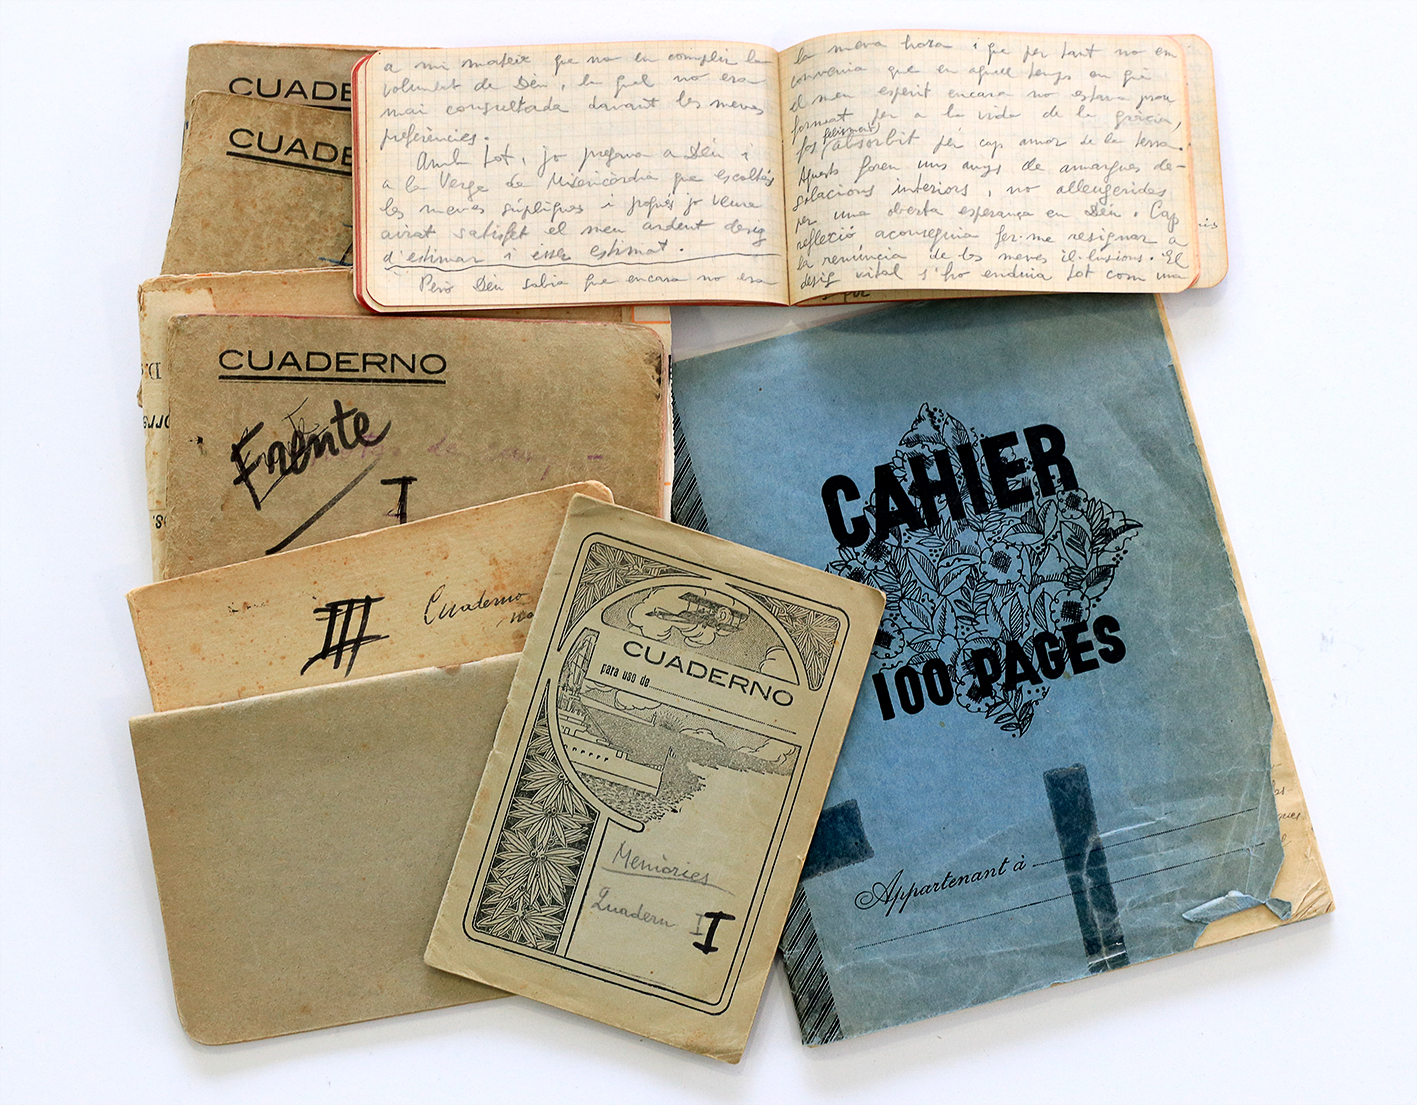 CUADE
CUADE
a mi mateix que no en complir la
voluntat de Déu, la qual no era
mai consultada davant les meves
preferències.
Amb tot, jo pregava a Déu i
a la Verge de Misericòrdia que escoltés
les meves súpliques i pogués jo veure
aviat satisfet el meu ardent desig
d'estimar i ésser estimat.
Però Déu sabia que encara no era
la meva hora i que per tant no em
convenia que en aquell temps en què
el meu esperit encara no estava prou
format per a la vida de la gràcia,
fos (félixment) absorbit per cap amor de la terra.
Aquests foren uns anys de amargues de-
solacions interiors, no alleugerides
per una oberta esperança en Déu. Cap
reflexió aconseguia fer-me resignar a
la renúncia de les meves il·lusions. El
desig vital s'ho enduia tot com una
CUADERNO
Frente
I
III
Cuaderno
CUADERNO
para uso de
Memòries
Quadern II
CAHIER
100 PAGES
Appartenant à